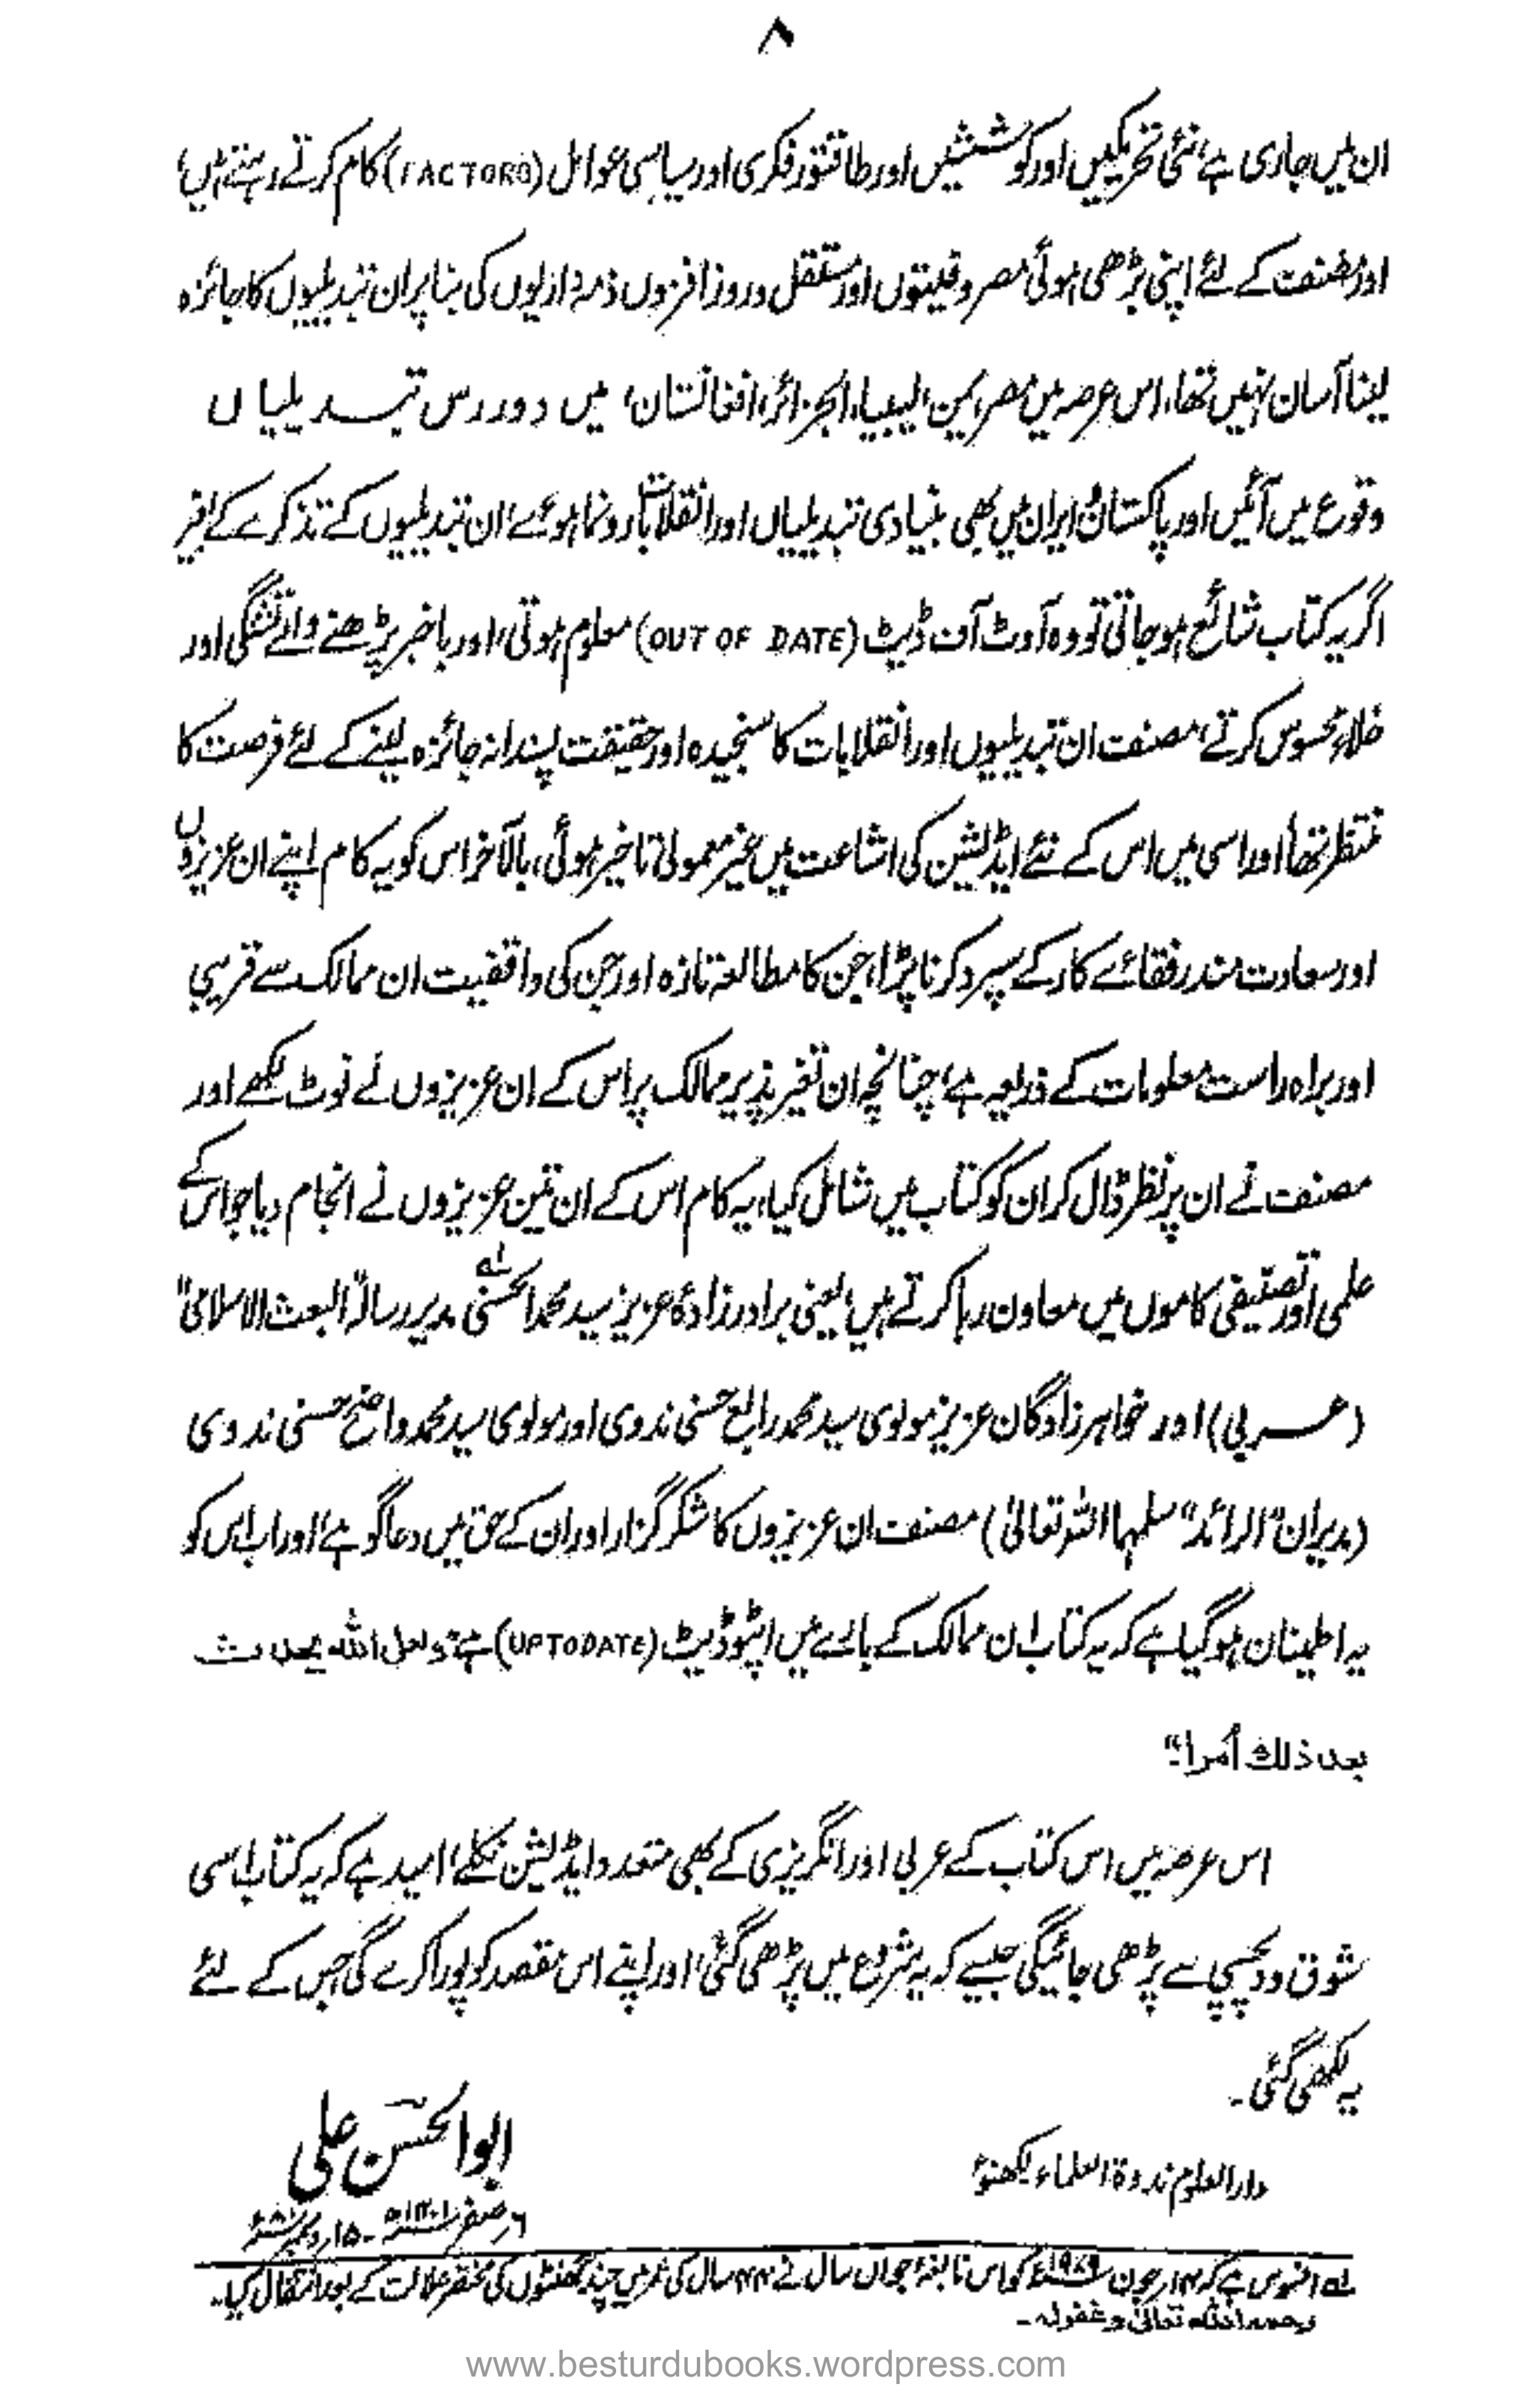 ۸
ان میں جاری ہے، نئی تحریکیں اور کوششیں اور طاقتور فکری اور سیاسی عوامل (FACTORS) کام کرتے رہتے ہیں،
اور مصنف کے لئے اپنی بڑھی ہوئی مصروفیتوں اور مستقل و روز افزوں ذمہ داریوں کی بنا پر ان تبدیلیوں کا جائزہ
لینا آسان نہیں تھا، اس عرصہ میں مصر، یمن، لیبیا، الجزائر، افغانستان، میں دور رس تبدیلیاں
وقوع میں آئیں اور پاکستان، ایران میں بھی بنیادی تبدیلیاں اور انقلابات رونما ہوئے، ان تبدیلیوں کے تذکرے کے بغیر
اگر یہ کتاب شائع ہو جاتی تو وہ آوٹ آف ڈیٹ (OUT OF DATE) معلوم ہوتی، اور باخبر پڑھنے والے تشنگی اور
خلاء محسوس کرتے، مصنف ان تبدیلیوں اور انقلابات کا سنجیدہ اور حقیقت پسندانہ جائزہ لینے کے لئے فرصت کا
منتظر تھا، اور اسی میں اس کے نئے ایڈیشن کی اشاعت میں غیر معمولی تاخیر ہوئی، بالآخر اس کو یہ کام اپنے ان عزیزوں
اور سعادت مند رفقائے کار کے سپرد کرنا پڑا، جن کا مطالعہ تازہ اور جن کی واقفیت ان ممالک سے قریبی
اور براہ راست معلومات کے ذریعہ ہے، چنانچہ ان تغیر پذیر ممالک پر اس کے ان عزیزوں نے نوٹ لکھے اور
مصنف نے ان پر نظر ڈال کر ان کو کتاب میں شامل کیا، یہ کام اس کے ان تین عزیزوں نے انجام دیا جو اس کے
علمی اور تصنیفی کاموں میں معاون رہا کرتے ہیں، یعنی برادر زادۂ عزیز سید محمد الحسنی ؂۱ مدیر رسالہ "البعث الاسلامی"
(عربی) اور خواہر زادگان عزیز مولوی سید محمد رابع حسنی ندوی اور مولوی سید محمد واضح حسنی ندوی
(مدیران "الرائد" سلمہما اللہ تعالیٰ) مصنف ان عزیزوں کا شکر گزار اور ان کے حق میں دعا گو ہے، اور اب اس کو
یہ اطمینان ہو گیا ہے کہ یہ کتاب ان ممالک کے بارے میں اپٹو ڈیٹ (UPTODATE) ہے "ولعل اللہ یحدث
بعد ذلك أمرا"۔
اس عرصہ میں اس کتاب کے عربی اور انگریزی کے بھی متعدد ایڈیشن نکلے، امید ہے کہ یہ کتاب اسی
شوق و دلچسپی سے پڑھی جائیگی جیسے کہ یہ شروع میں پڑھی گئی، اور اپنے اس مقصد کو پورا کرے گی جس کے لئے
یہ لکھی گئی۔
ابوالحسن علی
دارالعلوم ندوۃ العلماء لکھنؤ
۶ صفر ۱۴۰۱ھ - ۱۵ دسمبر ۱۹۸۰ء
؂۱ افسوس ہے کہ ۱۳ جون ۱۹۷۹ء کو اس نابغۂ جواں سال نے ۴۴ سال کی عمر میں چند گھنٹوں کی مختصر علالت کے بعد انتقال کیا۔
رحمہ اللہ تعالیٰ وغفرلہ۔
www.besturdubooks.wordpress.com